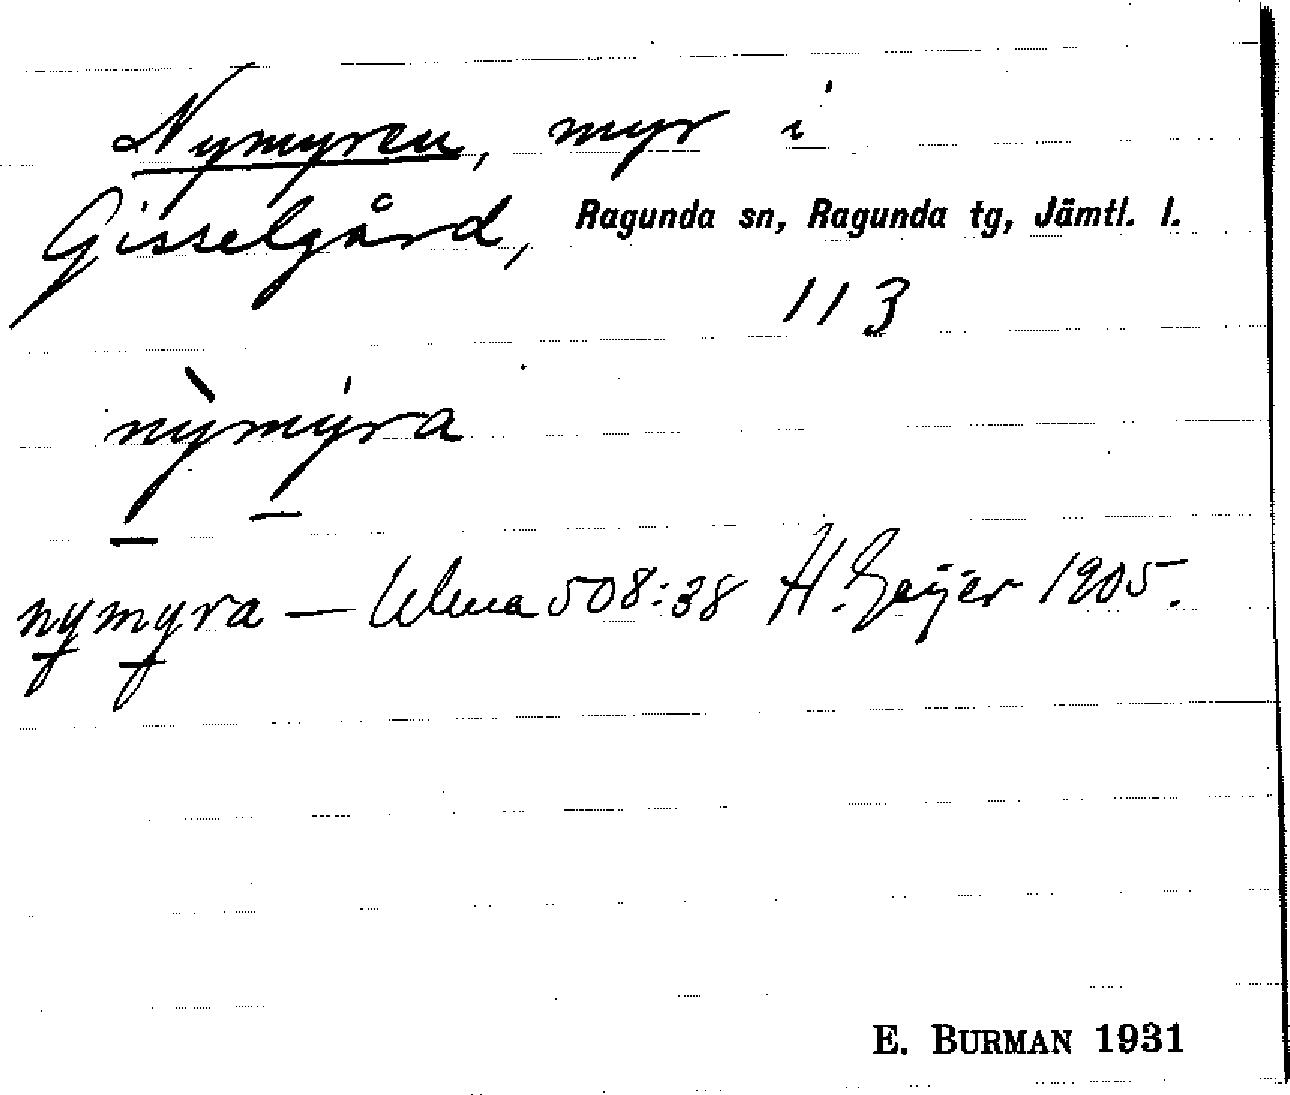 Nymyren, myr i
Gisselgård, Ragunda sn, Ragunda tg, Jämtl. l.
113
nỳmýra
nymyra — Ulma 508:38 H. Geijer 1905.
E. BURMAN 1931